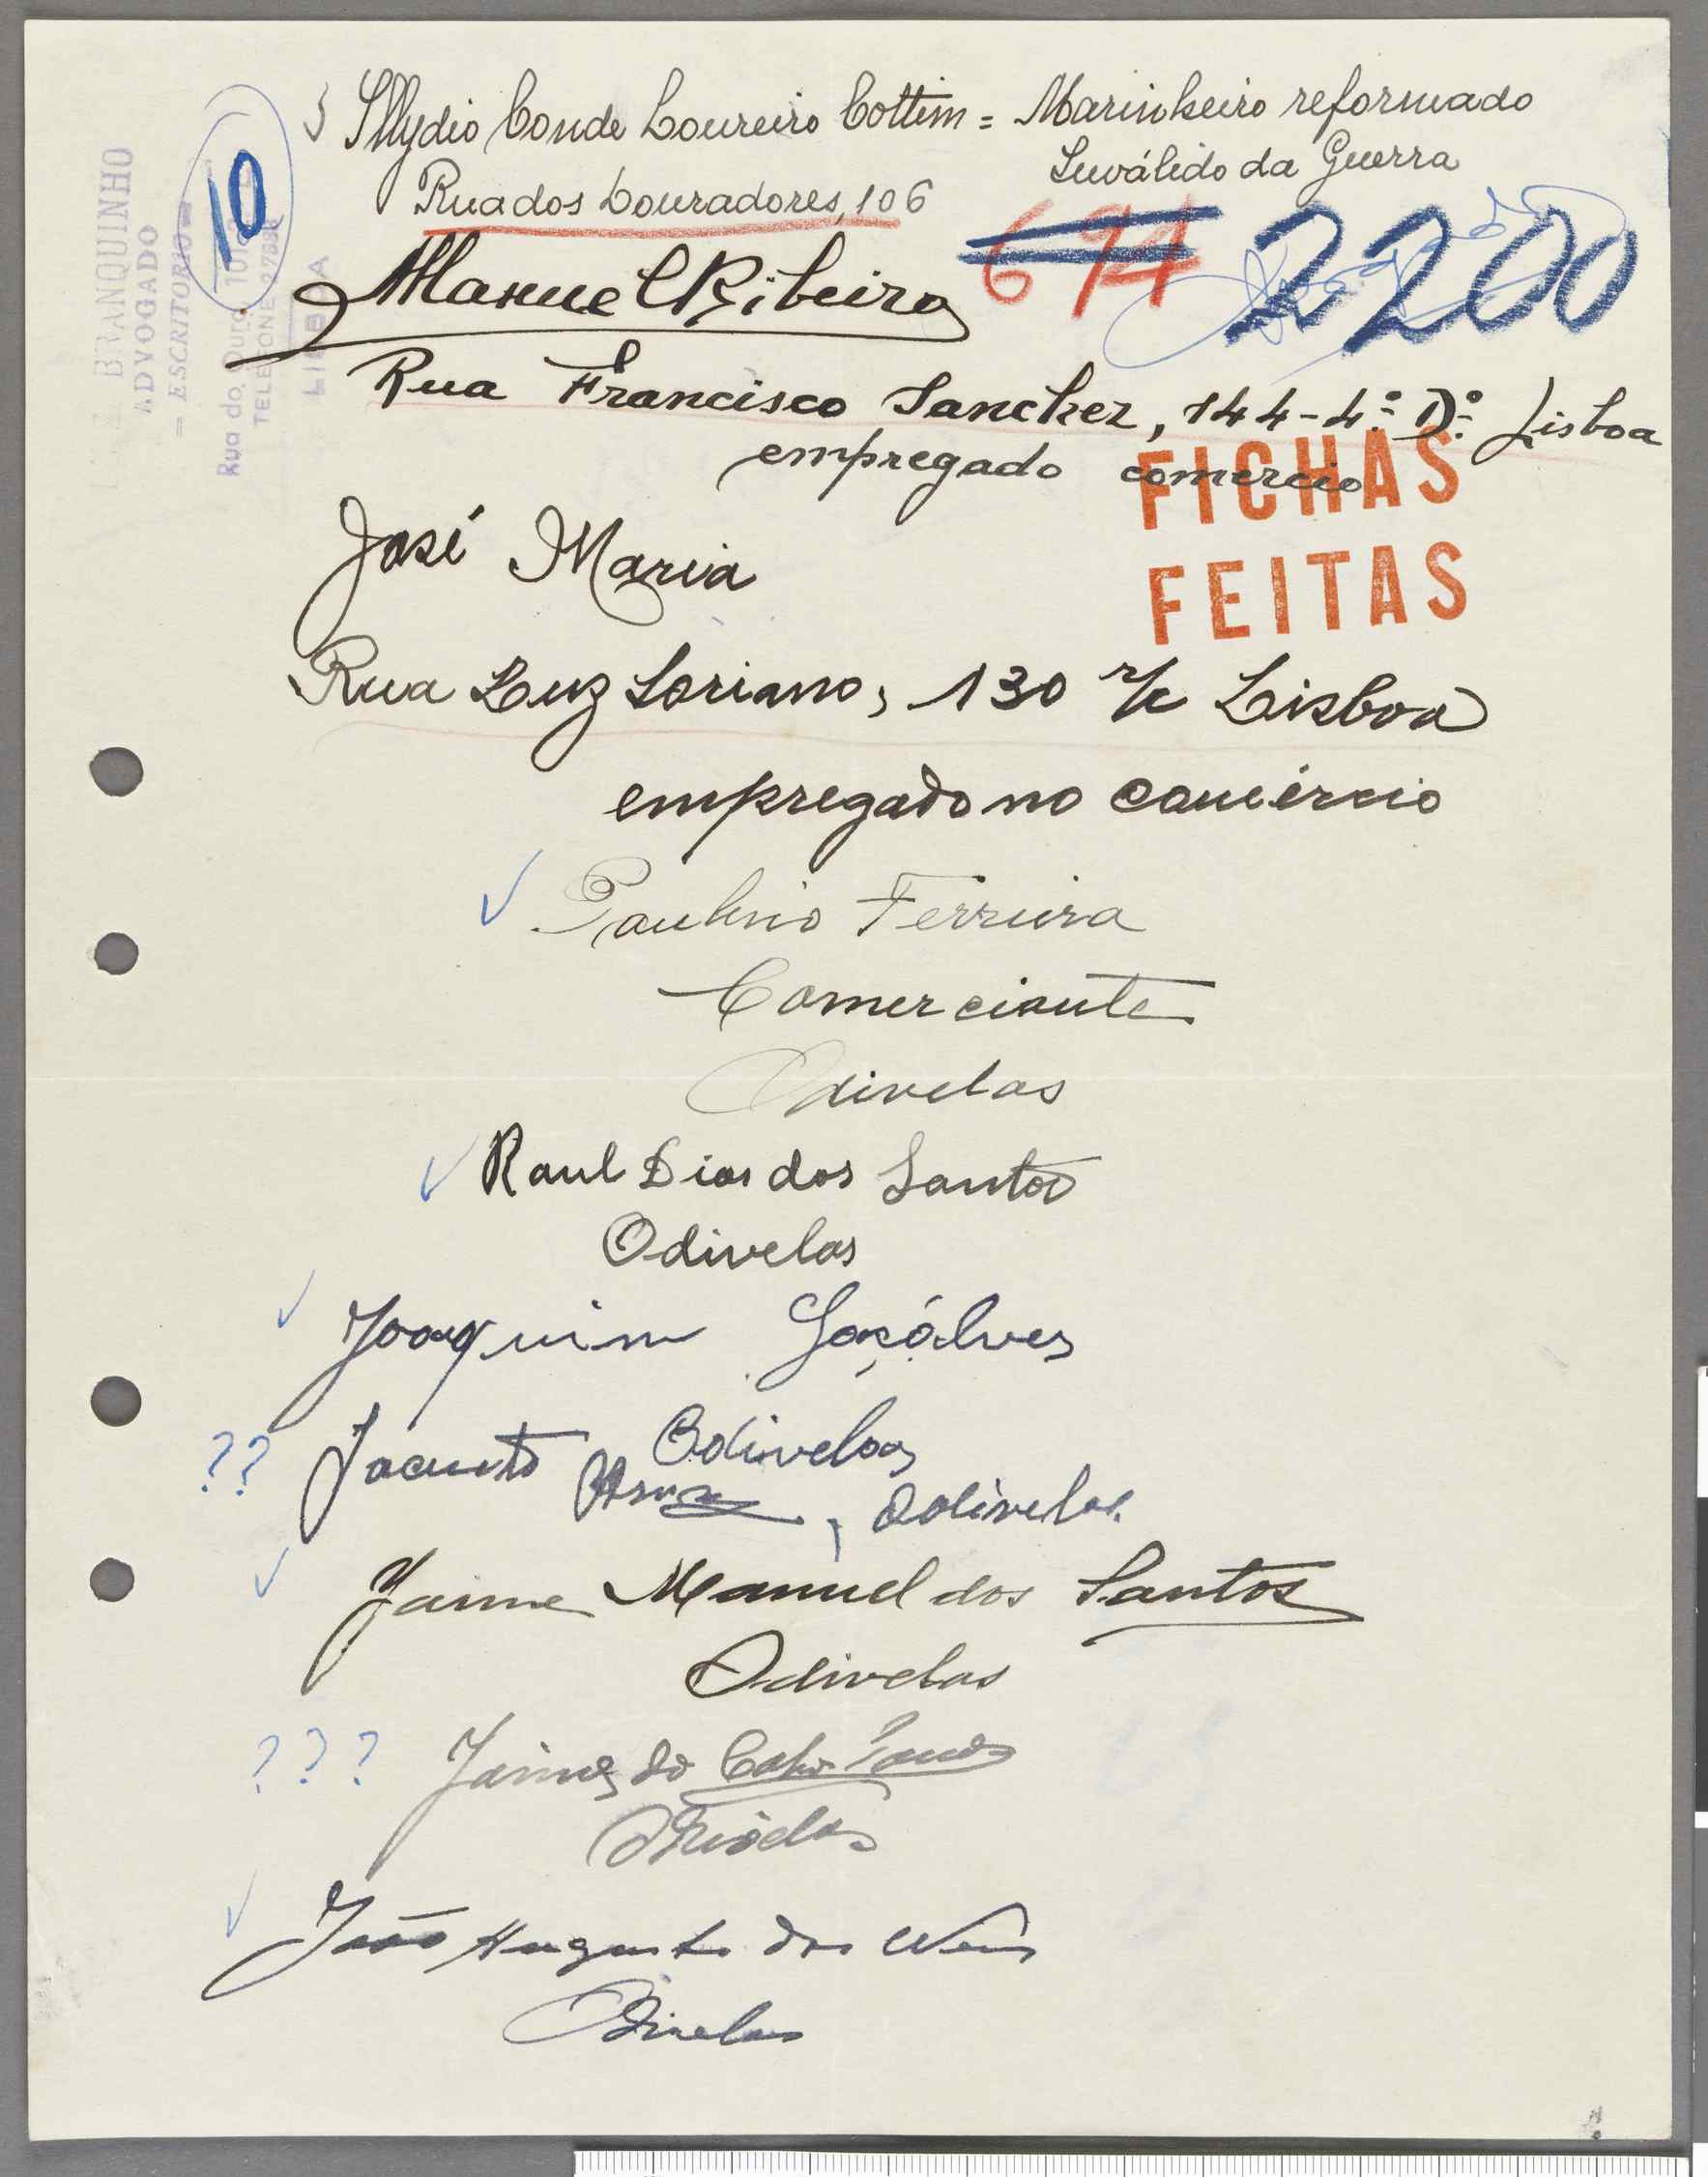 BRANQUINHO
ADVOGADO
= ESCRITORIO =
Rua do Ouro, 10
TELEFONE 2783
LISBOA
10
Illydio Conde Loureiro Cottim = Marinheiro reformado
Inválido da Guerra
Rua dos Douradores, 106
674
2200
Manuel Ribeiro
Rua Francisco Sanchez, 144-4.º D.º Lisboa
empregado comercio
FICHAS
FEITAS
José Maria
Rua Luz Soriano, 130 r/c Lisboa
empregado no comércio
Paulino Ferreira
Comerciante
Odivelas
Raul Dias dos Santos
Odivelas
Joaquim Goçálves
Odivelas
?? Jacinto , Odivelas
Jaime Manuel dos Santos
Odivelas
??? Jaime do
João Augusto dos
Odivelas